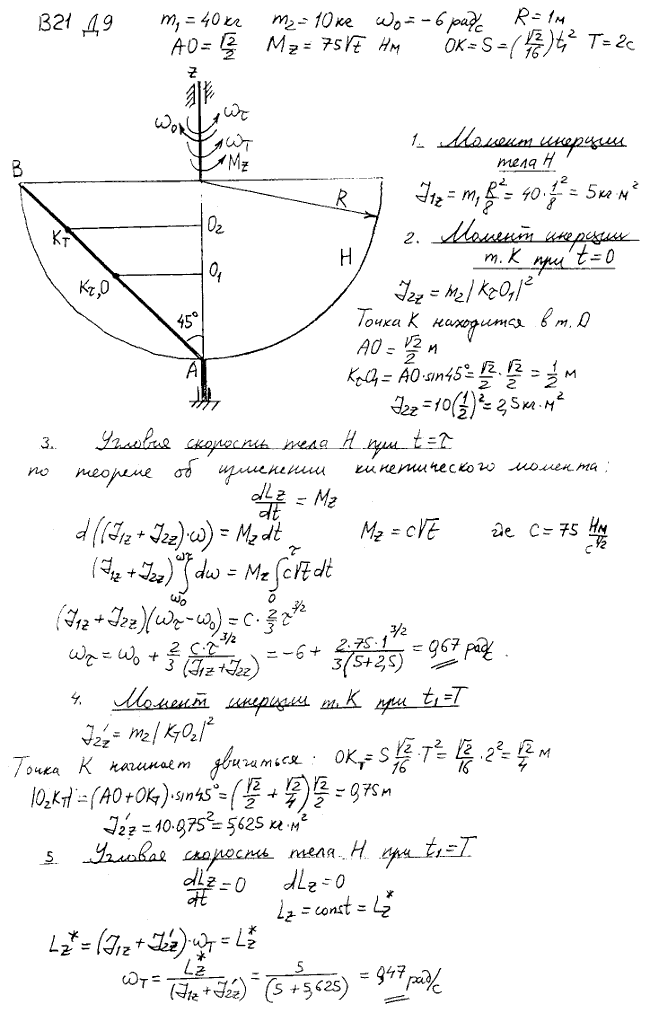 В21 Д9 m₁=40кг m₂=10кг ω₀=−6 рад/с R=1м
AO=√2/2 M_z=75√t Нм OK=S=(√2/16)t₁² T=2c
z
ω₀ ωτ
ω_T
M_z
B
R
K_T O₂
H
Kτ,O O₁
45°
A
1. Момент инерции
тела H
J₁z=m₁R²/8=40·1²/8=5кг·м²
2. Момент инерции
т. K при t=0
J₂z=m₂|KτO₁|²
Точка K находится в т. O
AO=√2/2 м
KτO₁=AO·sin45°=√2/2·√2/2=1/2 м
J₂z=10(1/2)²=2,5кг·м²
3. Угловая скорость тела H при t=τ
по теореме об изменении кинетического момента:
dLz/dt=Mz
d((J₁z+J₂z)·ω)=Mz dt Mz=c√t где C=75 Нм/с^½
(J₁z+J₂z)∫_{ω₀}^{ωτ}dω=Mz∫₀^τ c√t dt
(J₁z+J₂z)(ωτ−ω₀)=C·2/3 τ^{3/2}
ωτ=ω₀+2/3 C·τ^{3/2}/(J₁z+J₂z)=−6+2·75·1^{3/2}/3(5+2,5)=0,67 рад/с.
4. Момент инерции т.K при t₁=T
J₂z'=m₂|K_TO₂|²
Точка K начинает двигаться: OK_T=S√2/16·T²=√2/16·2²=√2/4 м
|O₂K_T|=(AO+OK_T)·sin45°=(√2/2+√2/4)√2/2=0,75м
J₂z'=10·0,75²=5,625 кг·м²
5. Угловая скорость тела H при t₁=T
dLz/dt=0 dLz=0
Lz=const=Lz*
Lz*=(J₁z+J₂z')·ω_T=Lz*
ω_T=Lz*/(J₁z+J₂z')=5/(5+5,625)=0,47 рад/с